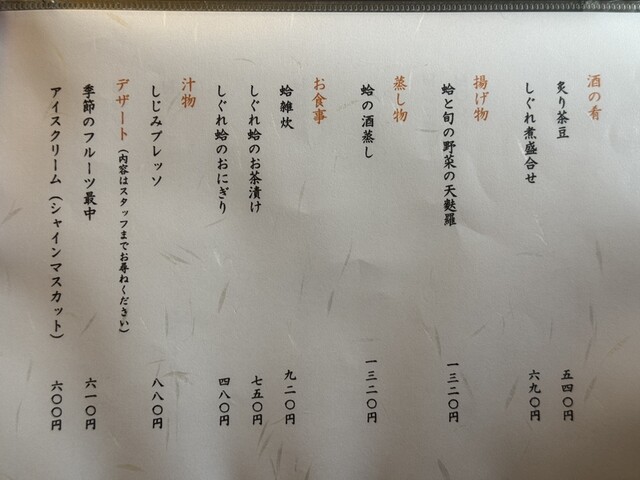 酒の肴
炙り茶豆 五四〇円
しぐれ煮盛合せ 六九〇円
揚げ物
蛤と旬の野菜の天麩羅 一三二〇円
蒸し物
蛤の酒蒸し 一三二〇円
お食事
蛤雑炊 九二〇円
しぐれ蛤のお茶漬け 七五〇円
しぐれ蛤のおにぎり 四八〇円
汁物
しじみプレッソ 八八〇円
デザート(内容はスタッフまでお尋ねください)
季節のフルーツ最中 六一〇円
アイスクリーム(シャインマスカット) 六〇〇円